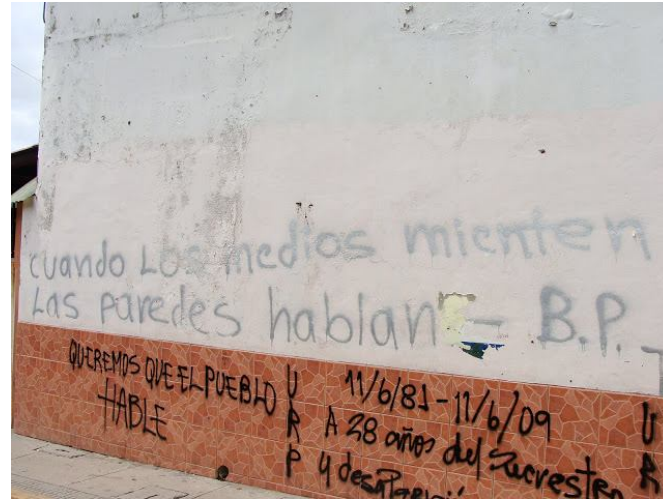 cuando Los medios mienten
Las paredes hablan - B.P.
QUEREMOS QUE EL PUEBLO
HABLE
U
R
P
11/6/81 - 11/6/09
A 28 años del Sucrester
y
U
R